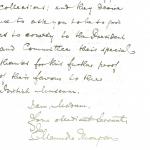 collections: and they desire
me to ask you to be so good
as to convey to the President
and Committee their special
thanks for this further proof
of their favour to the
British Museum.
I am, Madam,
Your obedient Servant,
E. Maunde Thompson